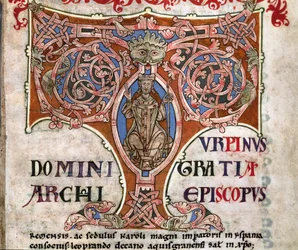 TVRPINVS
DOMINI GRATIA
ARCHI EPISCOPVS
ac sedulus karoli magni imperatoris in yspania
consocius leoprando decano aquisgranensi sal in xpo.